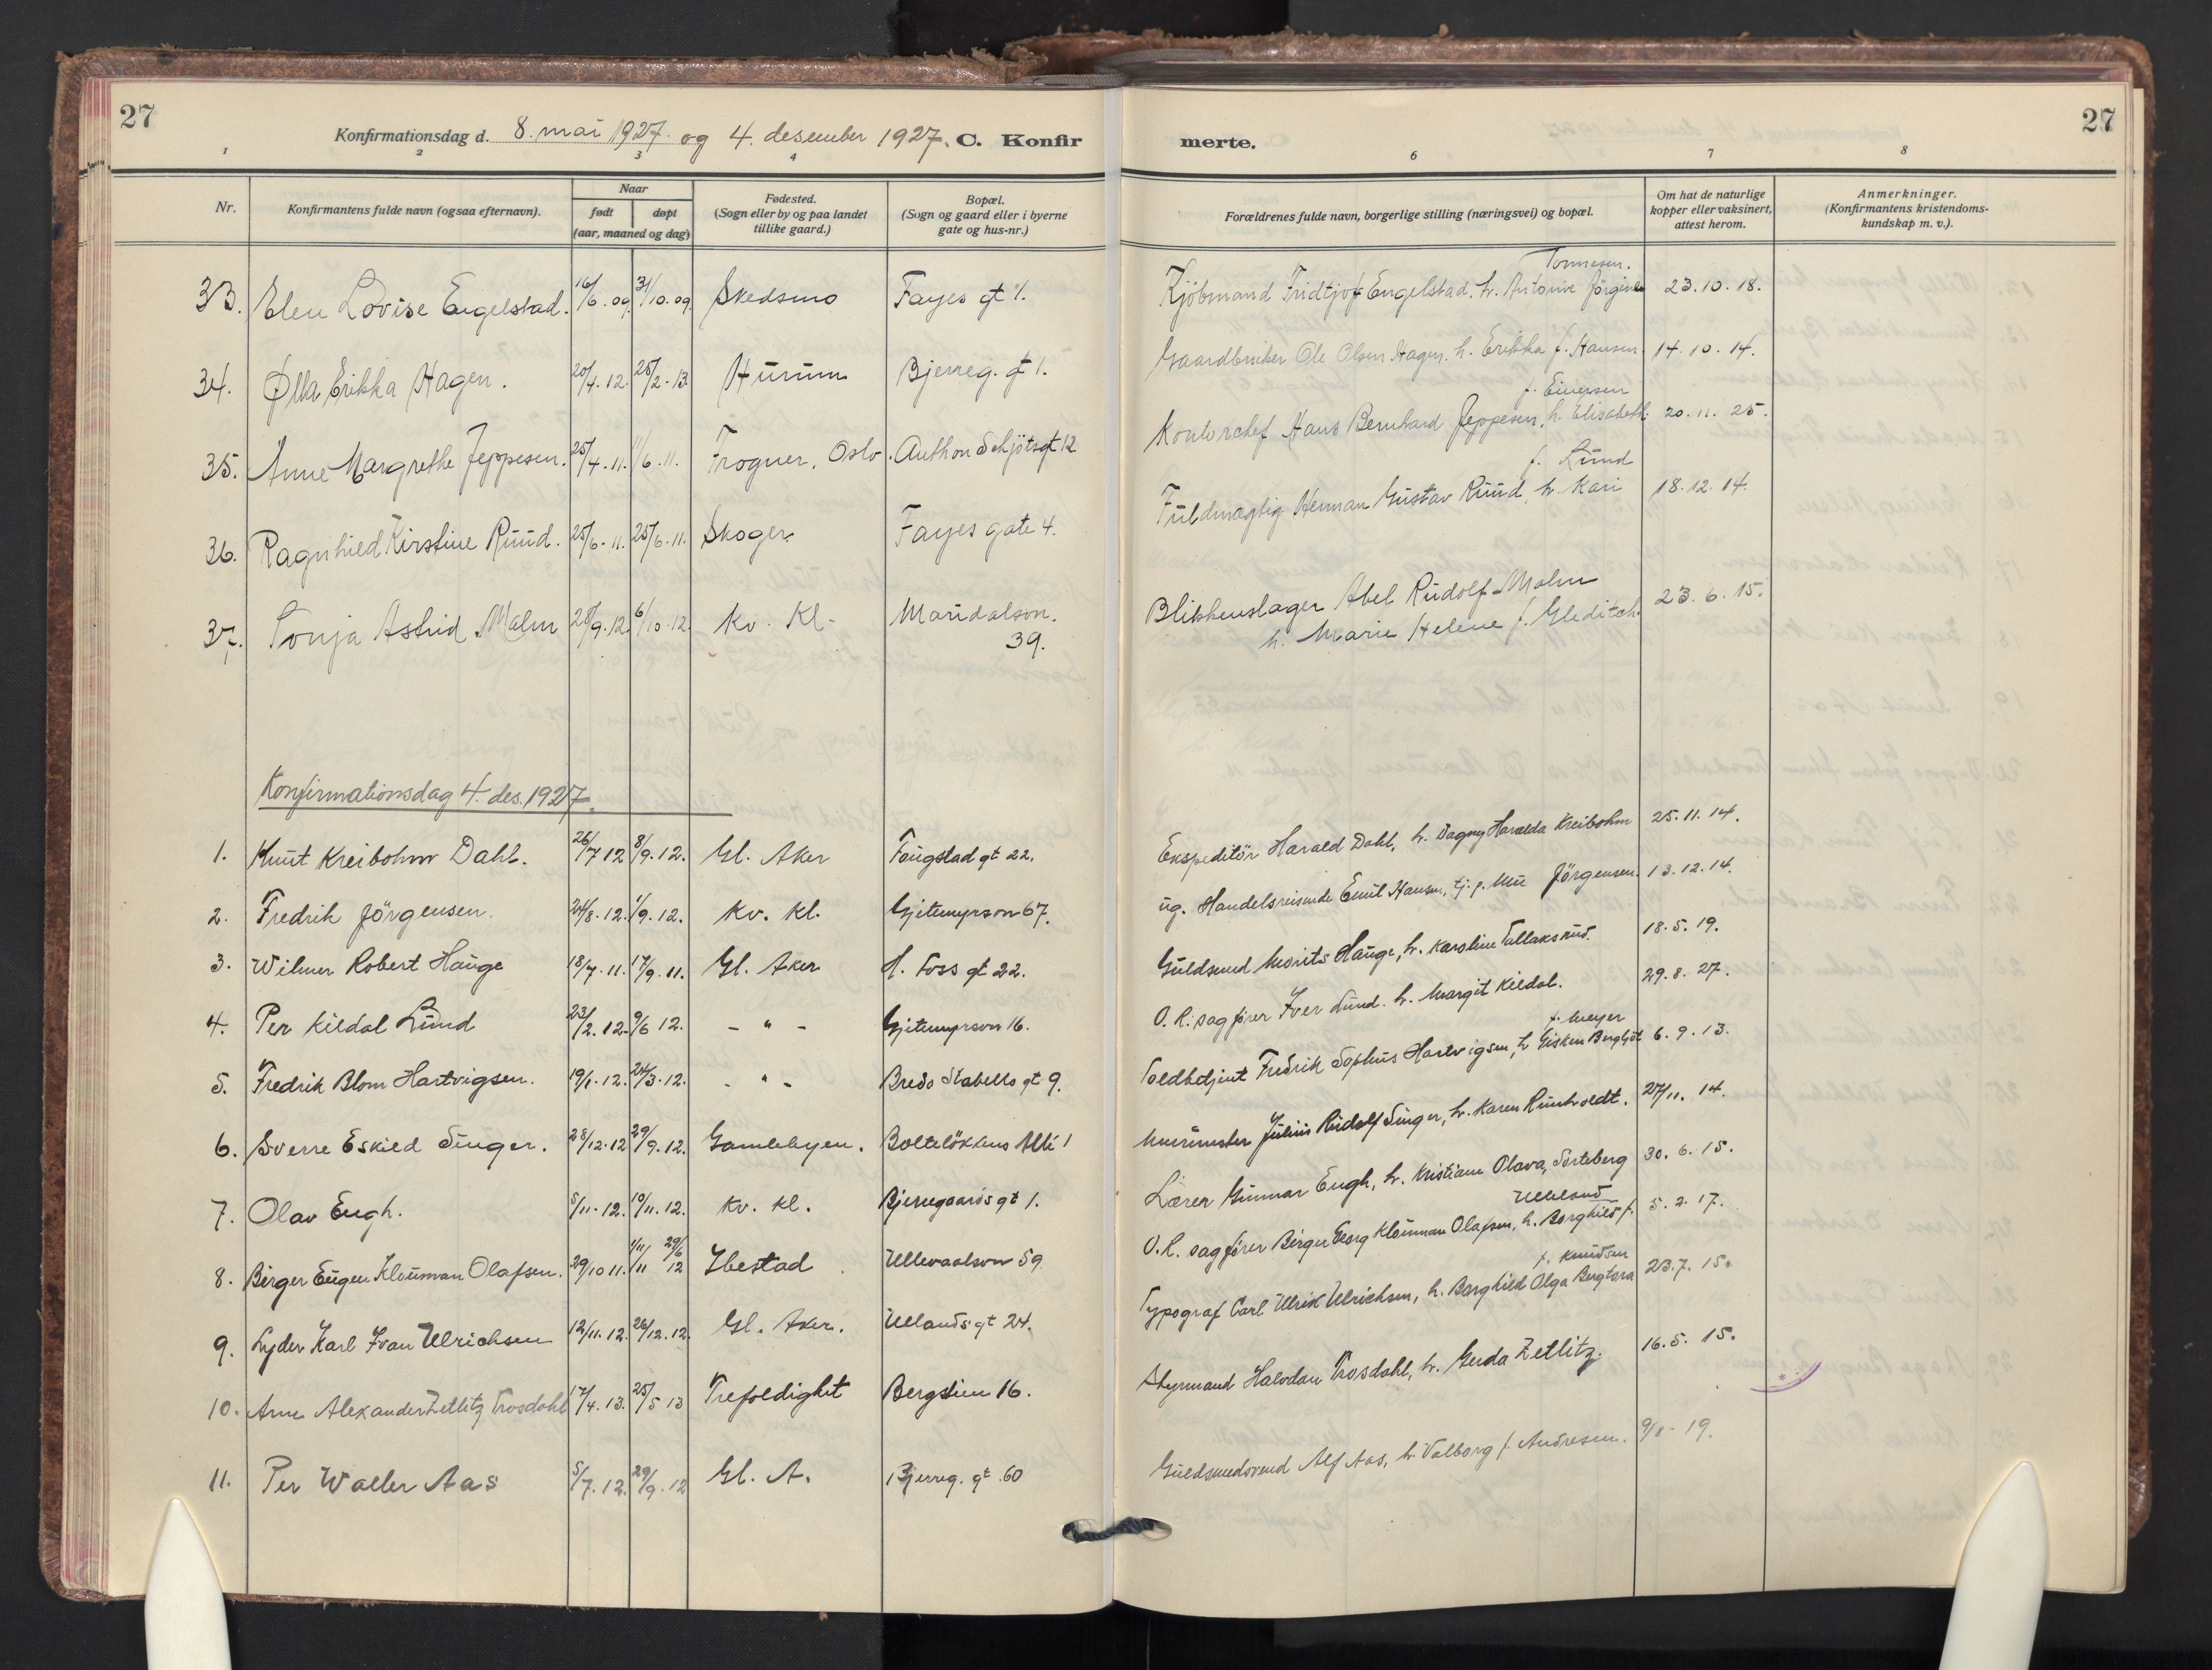 27
Konfirmationsdag d. 8. mai 1927. og 4. desember 1927. C. Konfir
merte.
27
1 2 3 4 6 7 8
Nr.
Konfirmantens fulde navn (ogsaa efternavn).
Naar
født døpt
(aar, maaned og dag)
Fødested.
(Sogn eller by og paa landet
tillike gaard.)
Bopæl.
(Sogn og gaard eller i byerne
gate og hus-nr.)
Forældrenes fulde navn, borgerlige stilling (næringsvei) og bopæl.
Om hat de naturlige
kopper eller vaksinert,
attest herom.
Anmerkninger.
(Konfirmantens kristendoms-
kundskap m. v.).
Tonnesen.
33. Elen Lovise Engelstad. 16/6.09. 31/10.09. Skedsmo Fayes gt 1. Kjöbmand Fridtjof Engelstad. h. Antonie Jörgine 23.10.18.
34. Ølla Erikka Hagen. 20/4.12. 25/2.13. Hurum Bjerreg. gt 1. Gaardbruker Ole Olsen Hagen. h. Erikka f. Hansen. 14.10.14.
f. Einersen
35. Anne Margrethe Jeppesen. 25/4.11. 11/6.11. Frogner. Oslo. Anthon Schjötsgt 12 Kontorchef Hans Bernhard Jeppesen, h. Elisabeth 20.11.25.
f. Lund
36. Ragnhild Kirstine Ruud. 25/6.11. 25/6.11. Skoger. Fayes gate 4. Fuldmægtig Herman Gustav Ruud, h. Kari 18.12.14.
37. Sonja Astrid Malm 28/9.12. 6/10.12. Kv. Kl. Maridalson. Blikkenslager Abel Rudolf Malm 23.6.15.
39. h. Marie Helene f. Gleditch.
Konfirmationsdag 4. des. 1927.
1. Knut Kreibohm Dahl. 26/7 12 8/9.12. Gl. Aker Fougstad gt 22. Ekspeditör Harald Dahl, h. Dagny Haralda Kreibohm 25.11.14.
2. Fredrik Jörgensen. 24/8.12. 1/9.12. Kv. Kl. Gjetemyrson 67. ug. Handelsreisende Emil Hansen, tj. p. Jörgensen. 13.12.14.
3. Wilmer Robert Hauge 18/7.11. 17/9.11. Gl. Aker H. Foss gt 22. Guldsmed Morits Hauge, h. Karoline Tallaksrud. 18.5.19.
4. Per Kildal Lund 23/2.12. 9/6 12. - " - Gjetemyrson 16. O.R. sagfører Iver Lund. h. Margit Kildal. 29.8.27.
f. Meyer
5. Fredrik Blom Hartvigsen. 19/1.12. 24/3.12. - " - Bredo Stabells gt 9. Toldbetjent Fredrik Sophus Hartvigsen, h Gisken Bergljot 6.9.13.
6. Sverre Eskild Singer. 28/12.12 29/9.12. Gamlebyen. Boltelökkens Allé 1 Murermester Julius Rudolf Singer, h. Karen Rumholdt. 27/11.14.
7. Olav Engh. 5/11.12. 10/11.12. Kv. Kl. Bjerregaards gt 1. Lærer Gunnar Engh, h. Kristiane Olava, Sorteberg 30.6.15.
Ulleland
8. Birger Eugen Klouman Olafsen. 29/10 11. 1/11 11 29/6 12 Ibestad Ullevaalson 59 O.R. sagfører Birger Georg Klouman Olafsen, h. Borghild f. 5.2.17.
f. Knudsen
9. Lyder Karl Ivan Ulrichsen 12/11.12. 26/12.12. Gl. Aker. Ullands gt 24. Typograf Carl Ulrik Ulrichsen, h. Borghild Olga Bergtora 23.7.15.
10. Arne Alexander Zetlitz Trosdahl 17/4.13. 25/5 13 Trefoldighet Bergslien 16. Styrmand Halvdan Trosdahl, h. Gerda Zetlitz. 16.5.15.
11. Per Waller Aas 5/7.12. 29/9.12 Gl. A. Bjerreg. gt. 60 Guldsmedsvend Alf Aas, h. Valborg f. Andresen. 9/8-19.